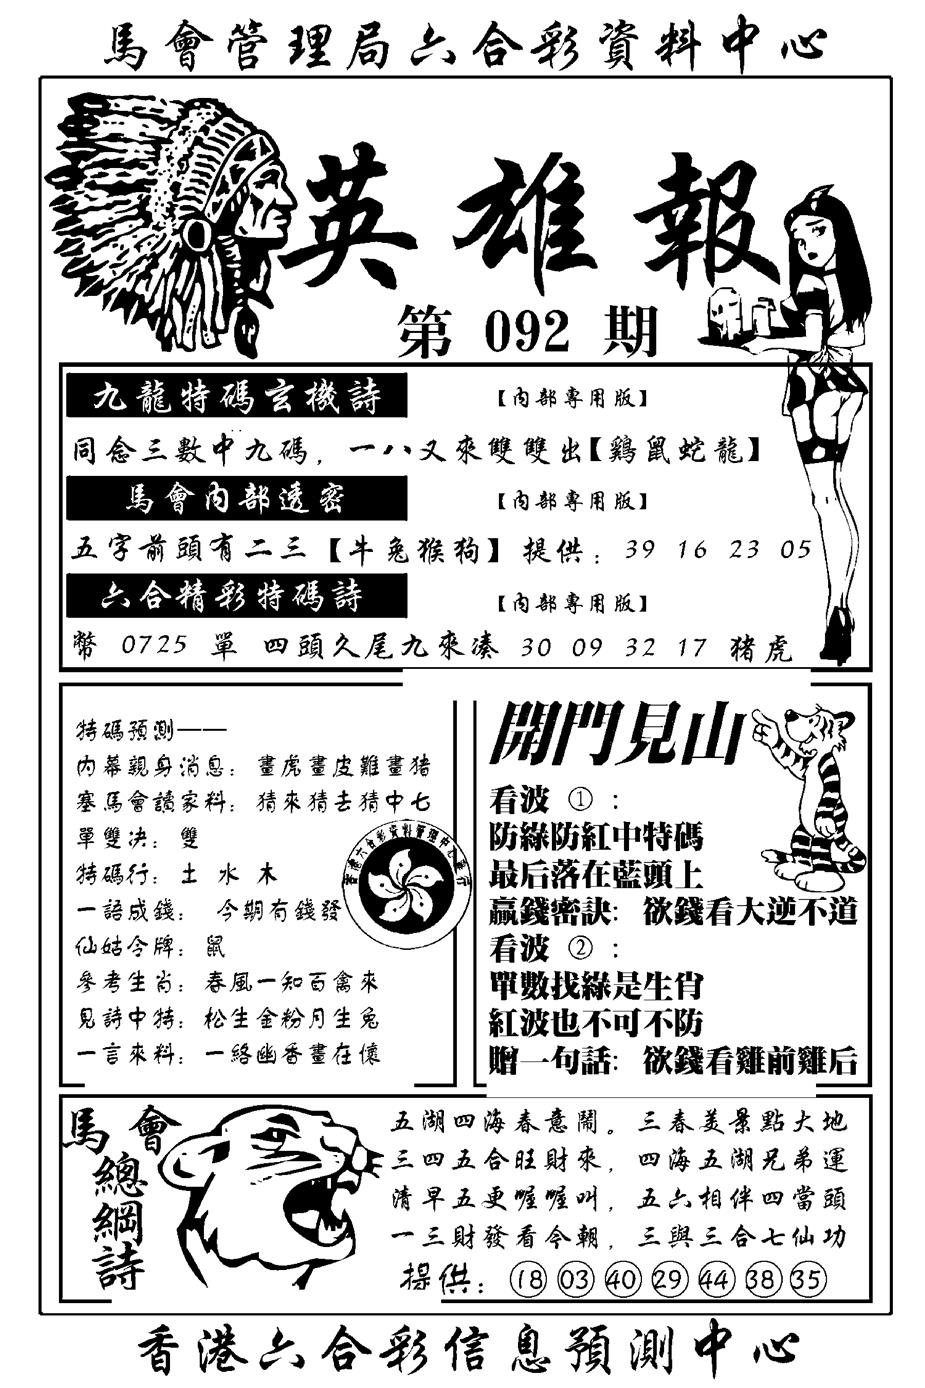 馬會管理局六合彩資料中心
英雄報
第 092 期
九龍特碼玄機詩 【內部專用版】
同念三數中九碼，一八又來雙雙出【鷄鼠蛇龍】
馬會內部透密 【內部專用版】
五字前頭有二三【牛兔猴狗】提供：39 16 23 05
六合精彩特碼詩 【內部專用版】
幣 0725 單 四頭久尾九來凑 30 09 32 17 猪虎
特碼預測——
內幕親身消息：畫虎畫皮難畫猪
塞馬會讀家料：猜來猜去猜中七
單雙决：雙
特碼行：土 水 木
一語成錢： 今期有錢發
仙姑令牌：鼠
參考生肖：春風一知百禽來
見詩中特：松生金粉月生兔
一言來料：一絡幽香畫在懷
香港六合彩資料管理中心發行
開門見山
看波 ①：
防綠防紅中特碼
最后落在藍頭上
贏錢密訣： 欲錢看大逆不道
看波 ②：
單數找綠是生肖
紅波也不可不防
贈一句話： 欲錢看雞前雞后
馬會
總綱詩
五湖四海春意鬧。三春美景點大地
三四五合旺財來，四海五湖兄弟運
清早五更喔喔叫，五六相伴四當頭
一三財發看今朝，三與三合七仙功
提供：⑱ ③ ㊵ ㉙ ㊹ ㊳ ㉟
香港六合彩信息預測中心